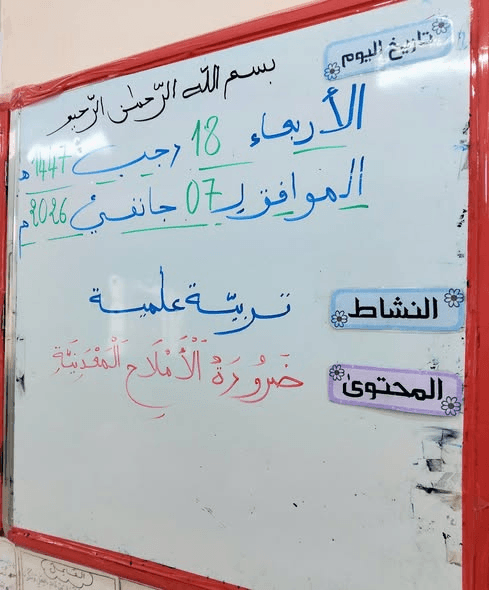 تاريخ اليوم
بسم الله الرّحمن الرّحيم
الأربعاء 18 رجب 1447 هـ
الموافق لـ 07 جانفي 2026 م
النشاط
تربيّة علمية
المحتوى
ضَرُورَةُ الْأَمْلَاحِ الْمَعْدِنِيَّةِ